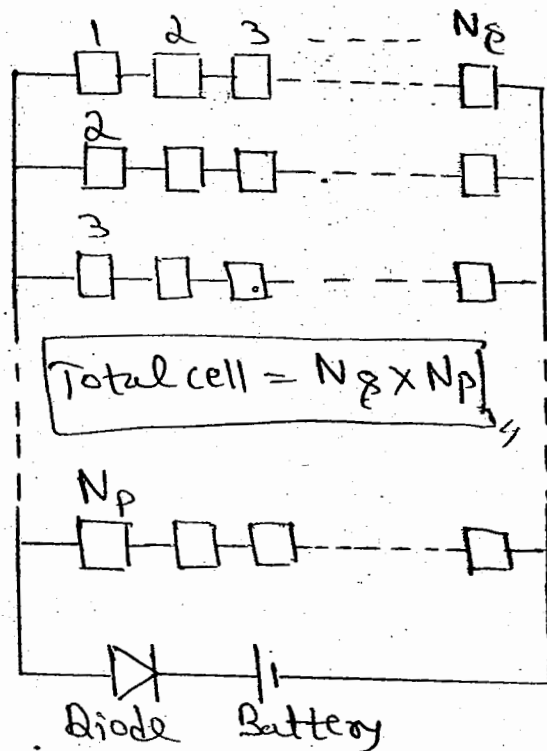 1 2 3 ---- Ns
2
3
Total cell = Ns × Np
Np
Diode Battery